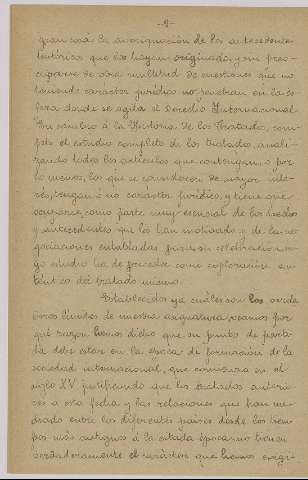 -9-
gran cosa la averiguación de los antecedentes
históricos que los hayan originado, y sin preo-
cuparse de otra multitud de cuestiones que no
teniendo carácter jurídico no entran en la es-
fera donde se agita el Derecho Internacional.
En cambio á la Historia de los Tratados, com-
pete el estudio completo de los tratados, anali-
zando todos los artículos que contengan, ó por
lo menos, los que se consideren de mayor inte-
rés, tengan ó no carácter jurídico, y tiene que
ocuparse, como parte muy esencial de los hechos
y antecedentes que los han motivado y de las ne-
gociaciones entabladas para su celebración cu-
yo estudio ha de preceder como exploración au-
téntica del tratado mismo.
Establecidos ya cuáles son los verda-
deros límites de nuestra asignatura veamos por
qué razón hemos dicho que su punto de parti-
da debe estar en la época de formación de la
sociedad internacional, que comienza en el
siglo XV justificando que los tratados anterio-
res á esta fecha y las relaciones que han me-
diado entre los diferentes países desde los tiem-
pos más antiguos á la citada época no tienen
verdaderamente el carácter que hemos exigi-